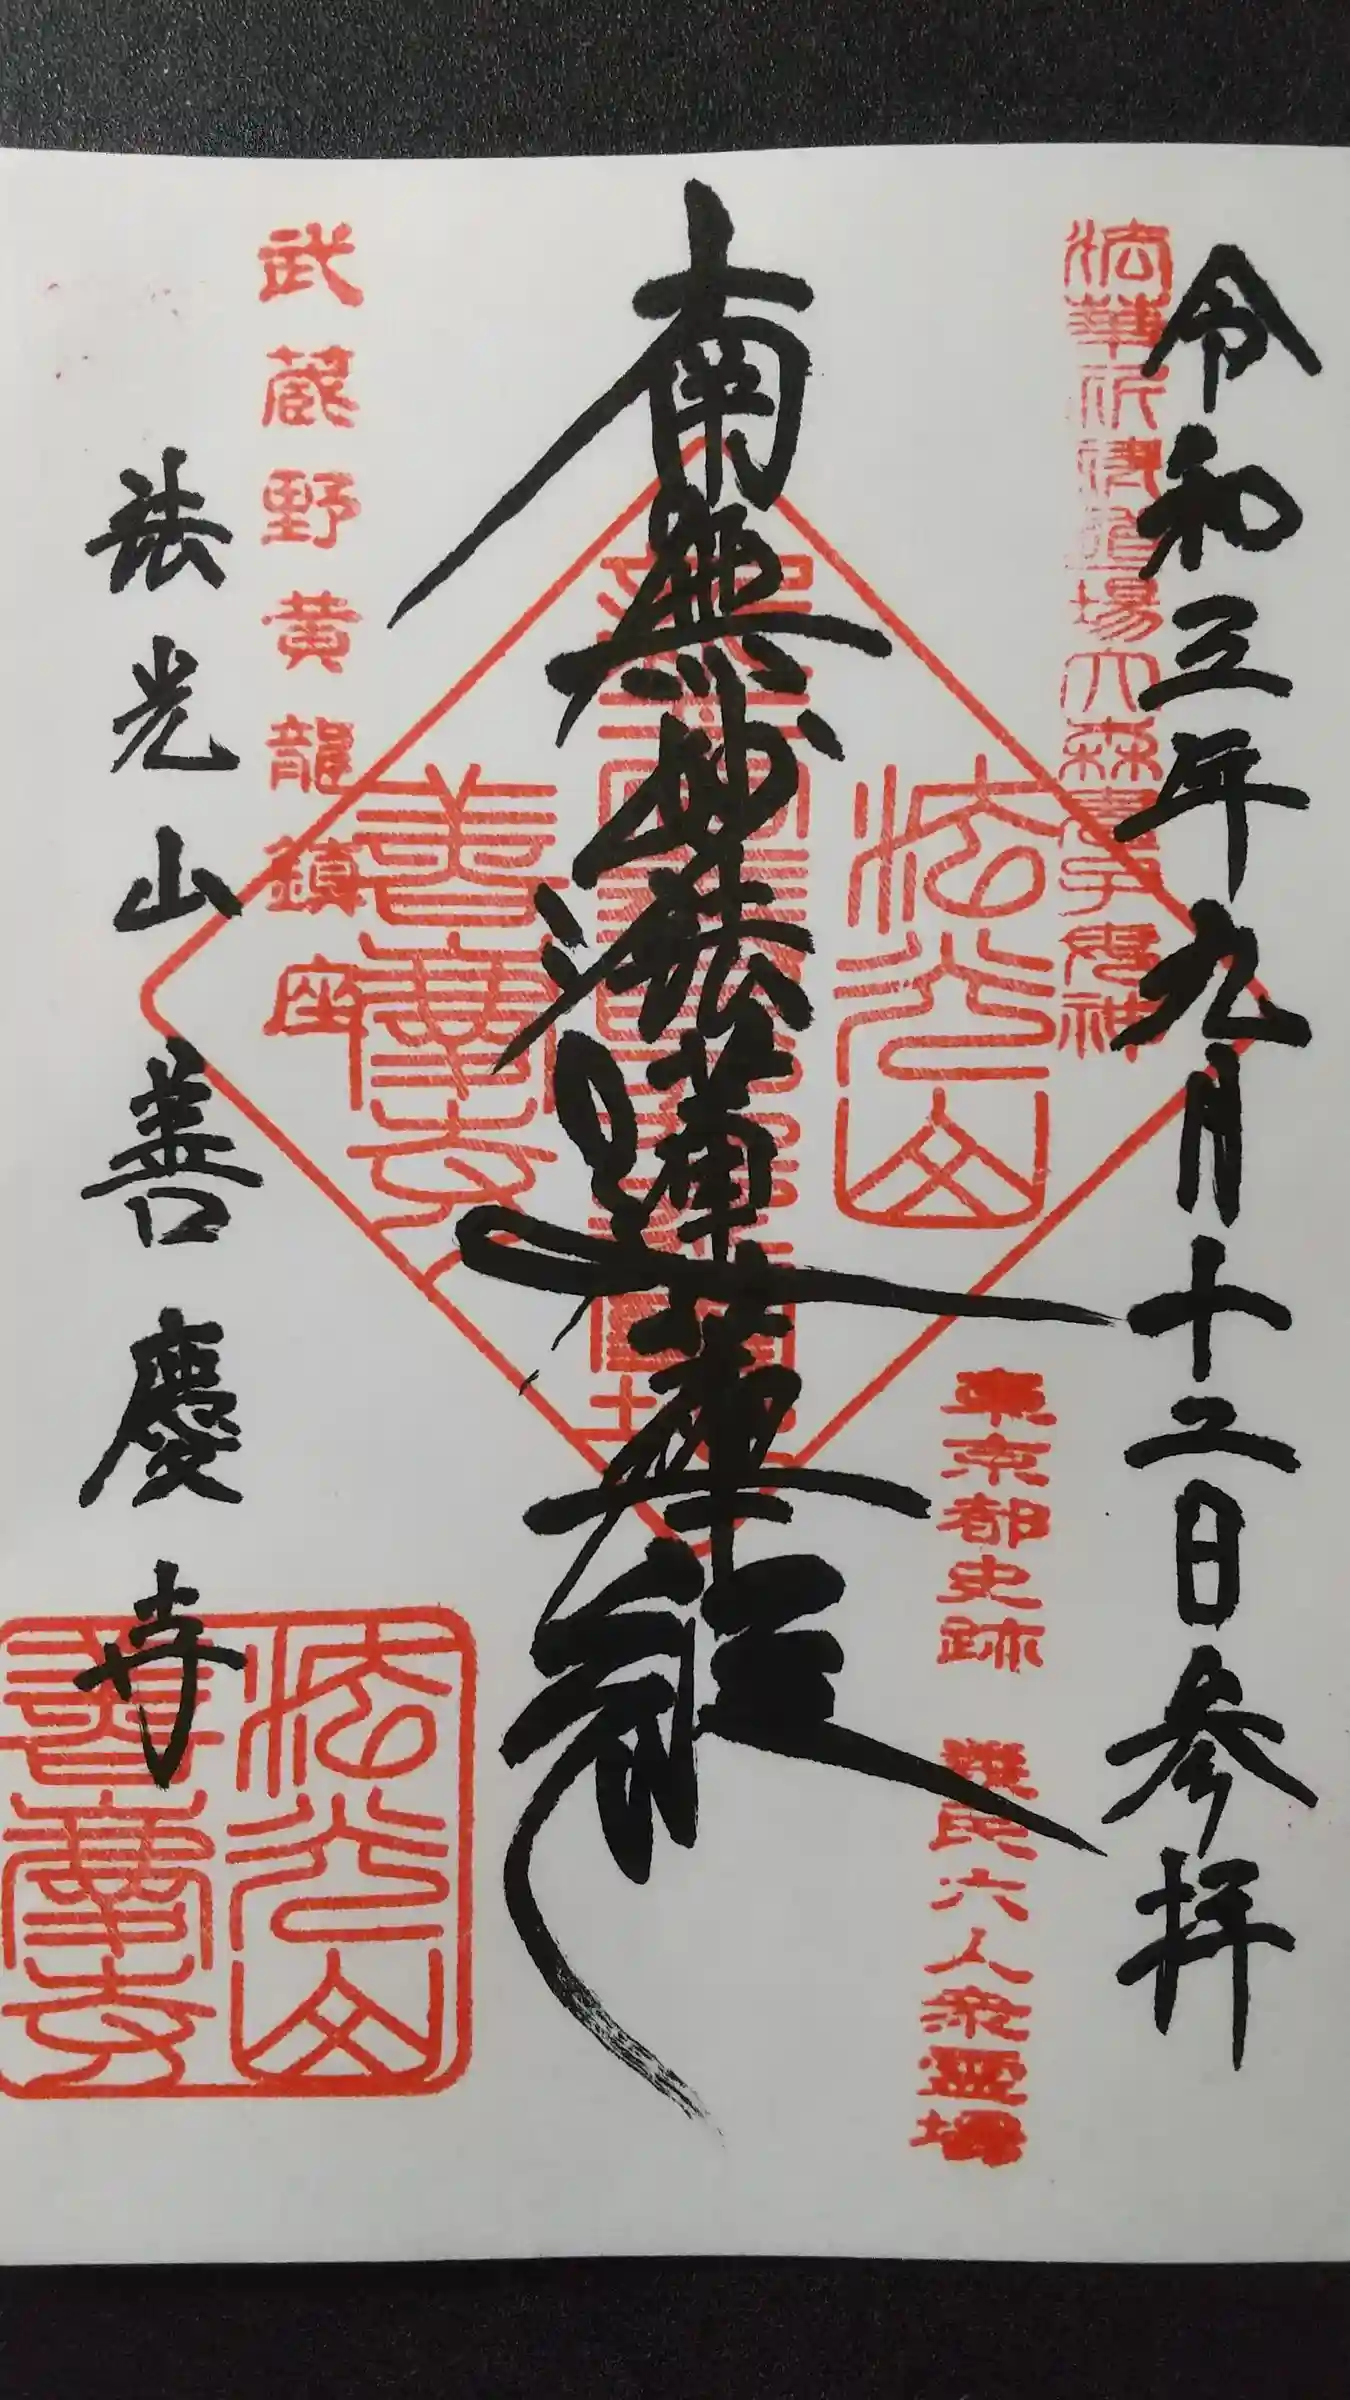 令和三年九月十二日参拝
法華祈祷道場大森鬼子母神
東京都史跡
義民六人衆霊場
南無妙法蓮華経
法光山
善慶寺
武蔵野黄龍鎮座
法光山善慶寺
法光山
善慶寺